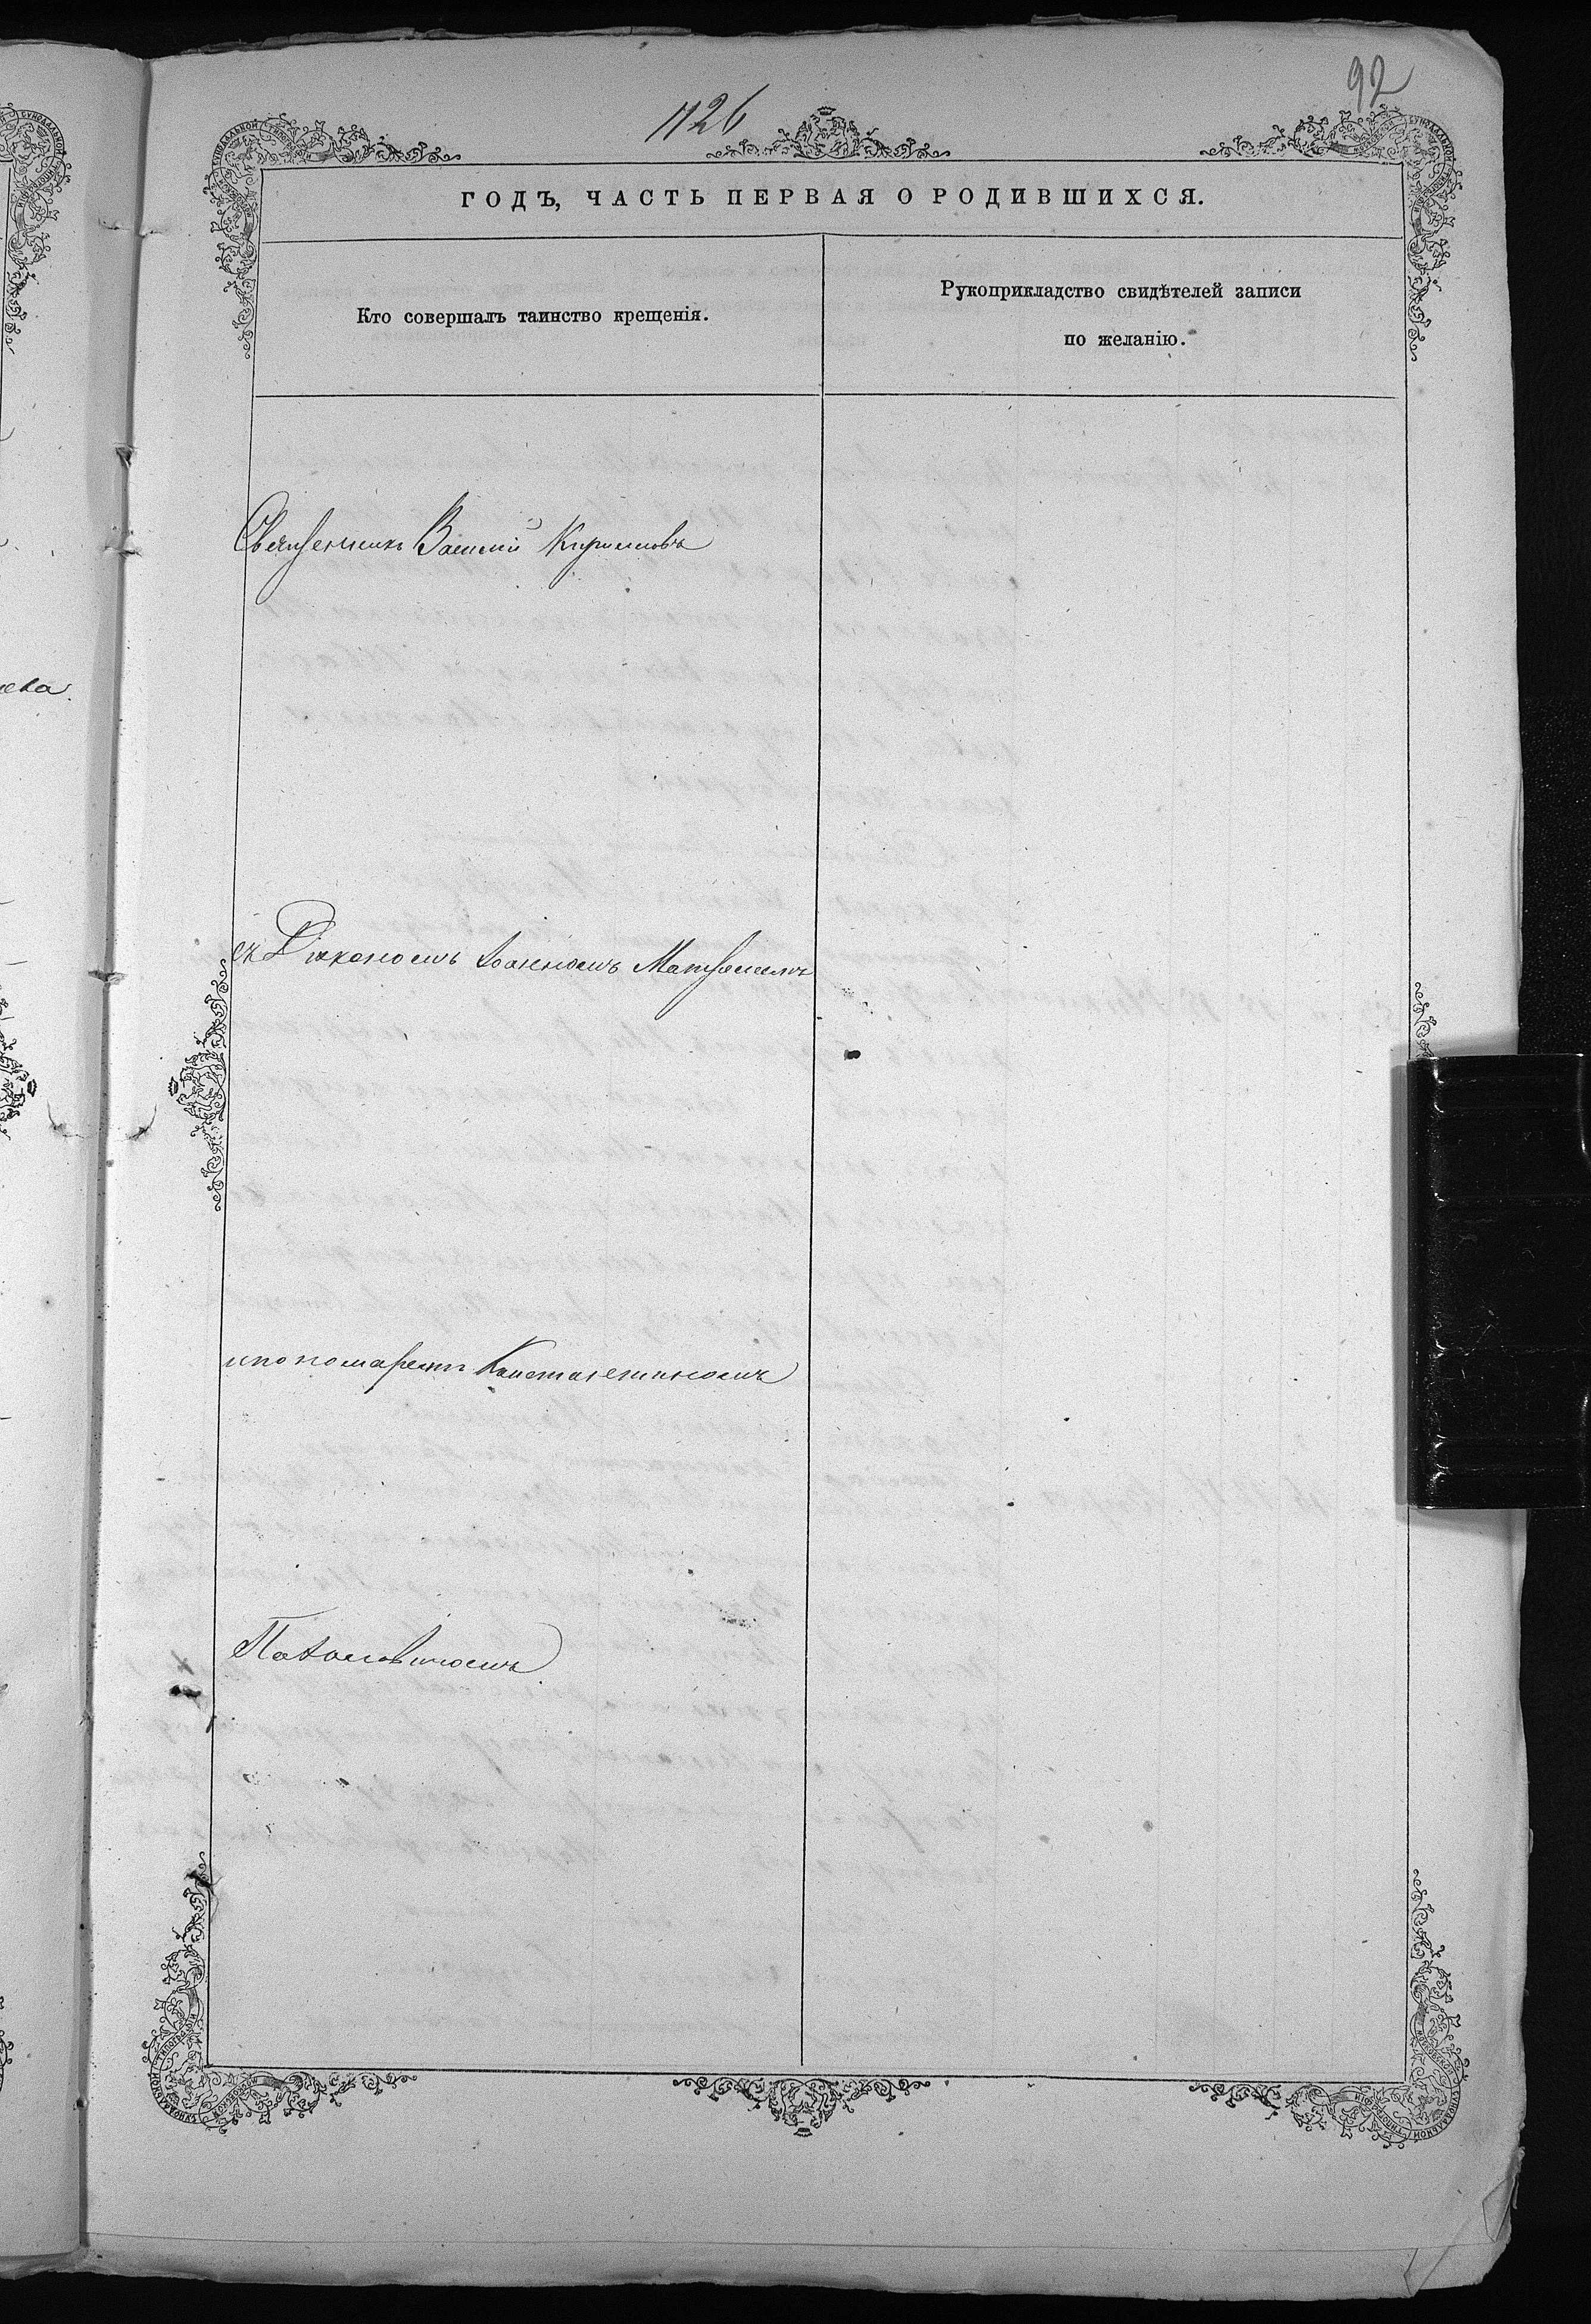 92
1126
ГОДЪ, ЧАСТЬ ПЕРВАЯ О РОДИВШИХСЯ.
Кто совершалъ таинство крещенія.
Рукоприкладство свидѣтелей записи
по желанію.
Священникъ Василій Кириловъ
съ Діакономъ Іоанномъ
и пономаремъ Константиномъ